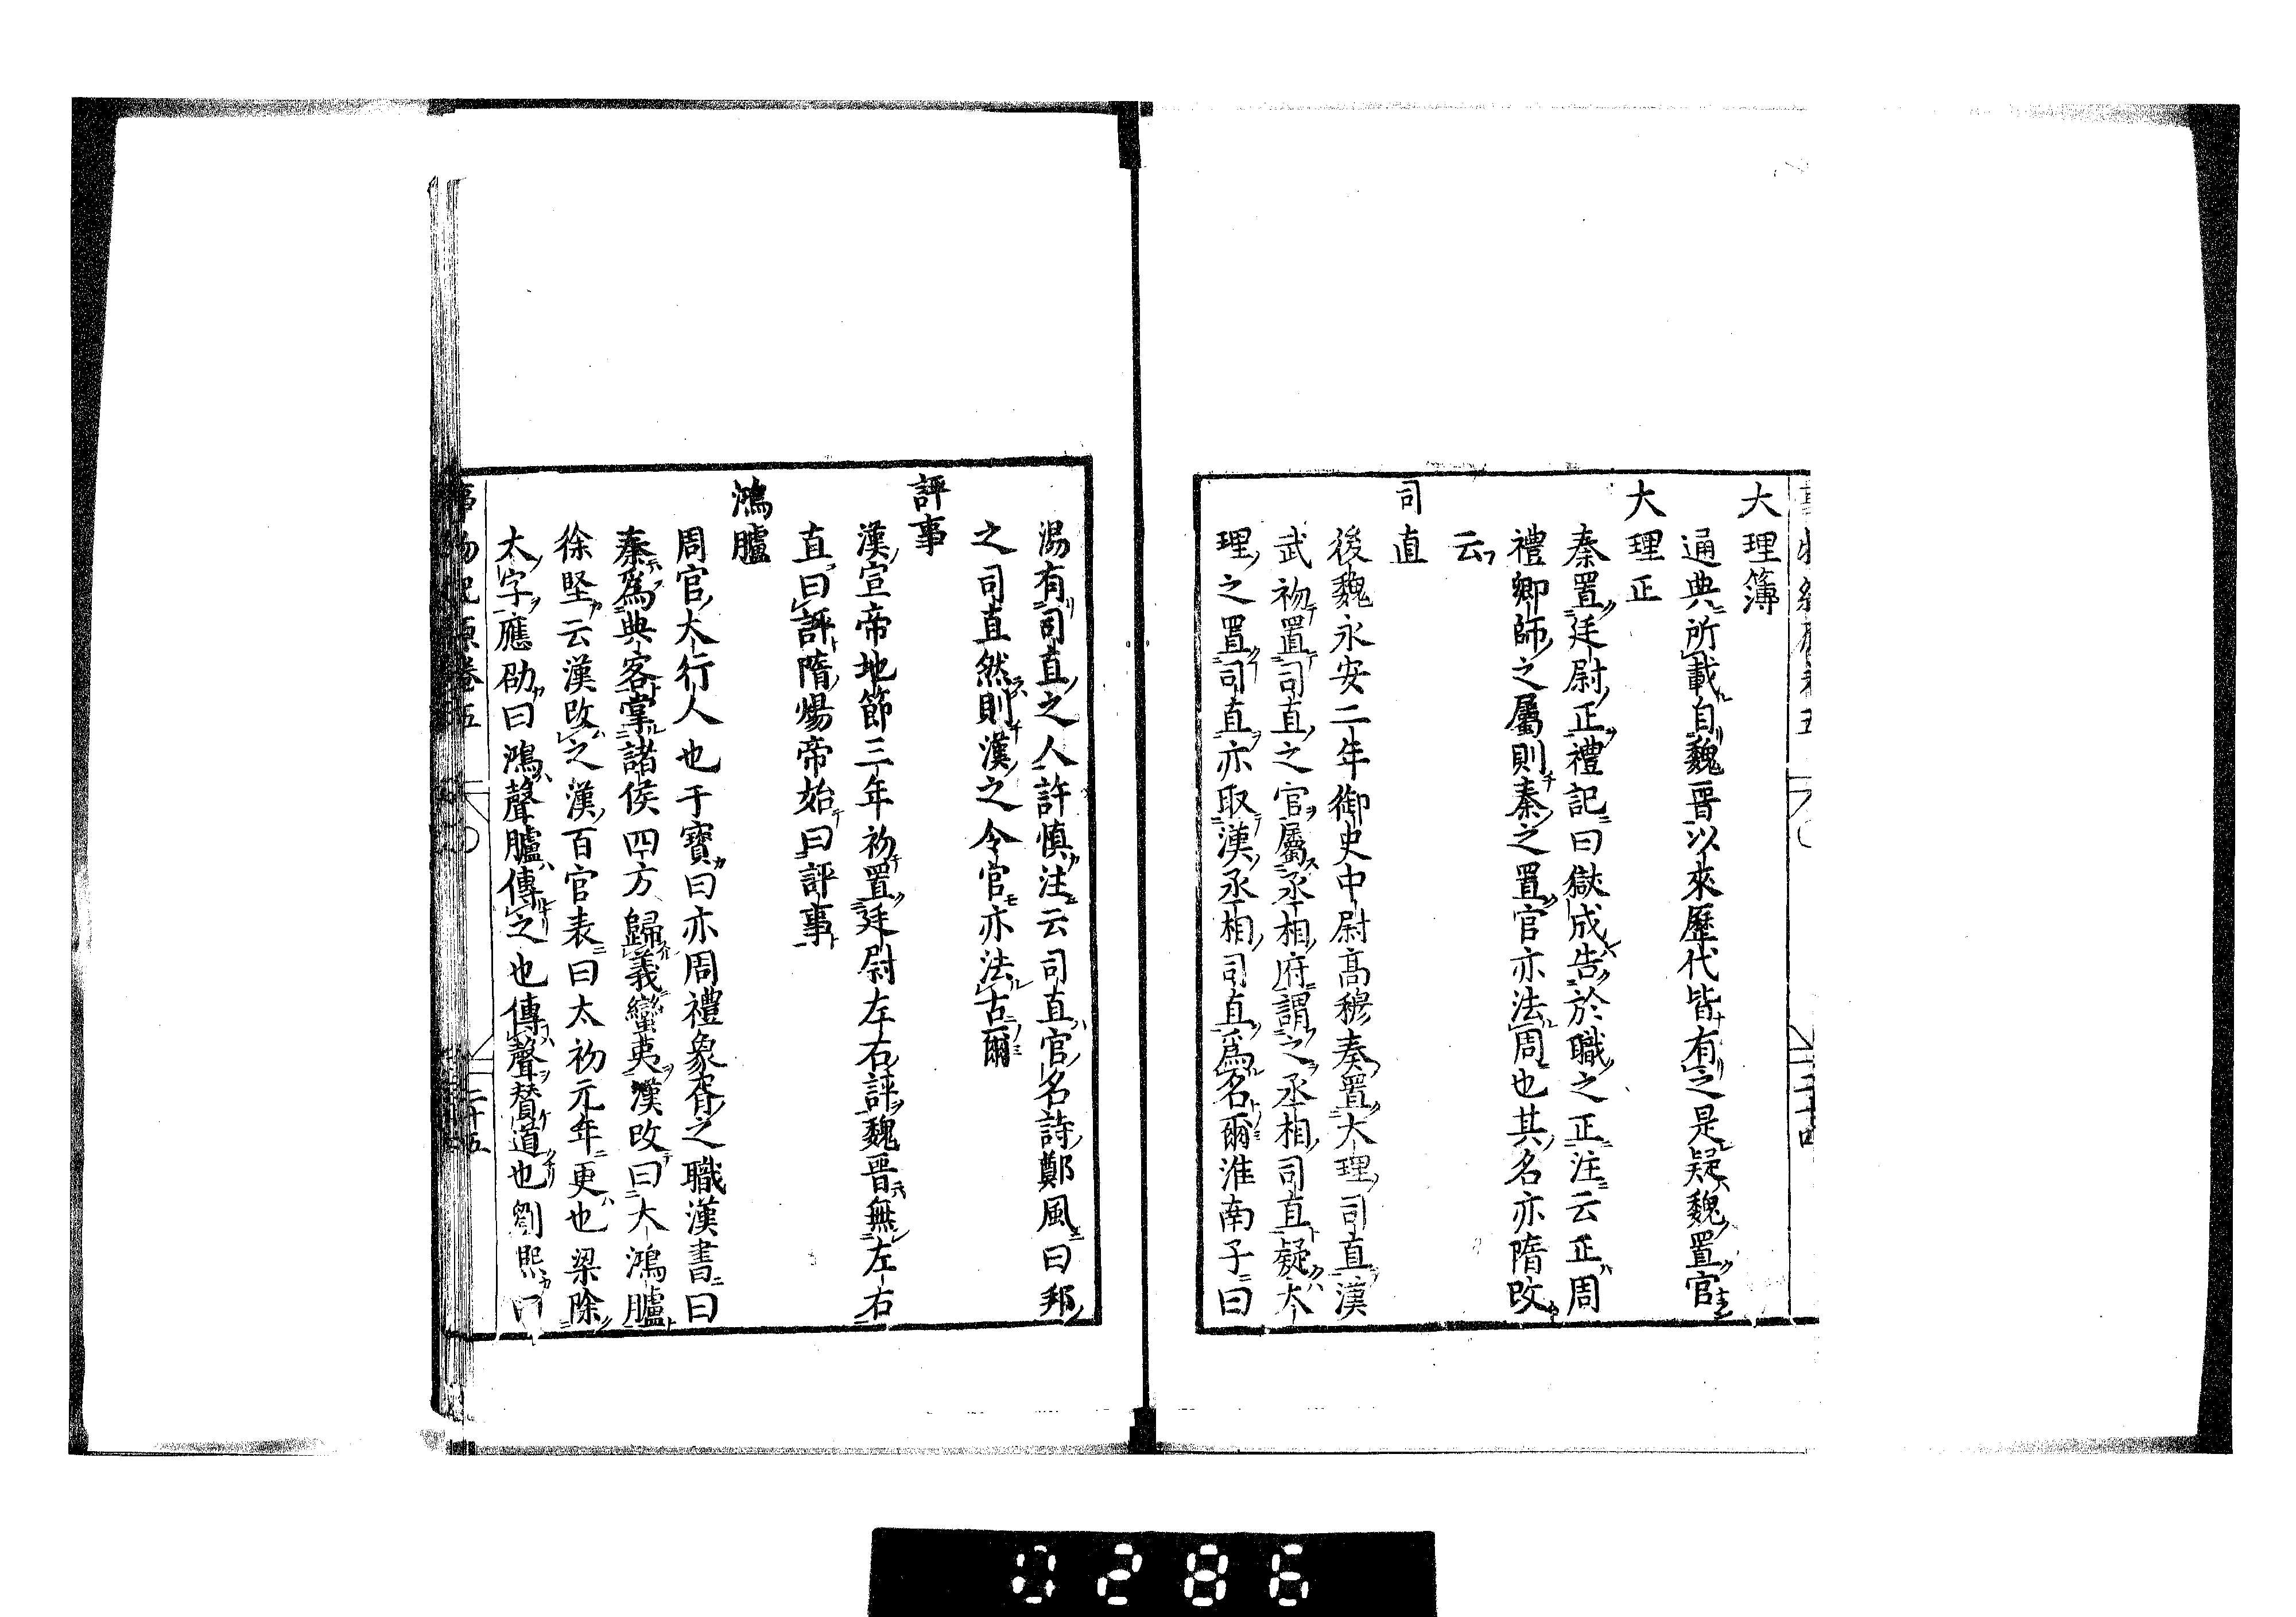 大理簿
通典所載自魏晋以來歷代皆有之是疑魏置官
大理正
秦置廷尉正禮記曰獄成告於職之正注云正周
禮鄉師之屬則秦之置官亦法周也其名亦隋改
云
司直
後魏永安二年御史中尉髙穆奏置大理司直漢
武初置司直之官屬丞相府謂之丞相司直疑大
理之置司直亦取漢丞相司直爲名爾淮南子曰
二十四
湯有司直之人許慎注云司直官名詩鄭風曰邦
之司直然則漢之令官亦法古爾
評事
漢宣帝地節三年初置廷尉左右評魏晋無左右
直曰評隋煬帝始曰評事
鴻臚
周官大行人也于寶曰亦周禮象胥之職漢書曰
秦爲典客掌諸侯四方歸義蠻夷漢改曰大鴻臚
徐堅云漢改之漢百官表曰太初元年更也梁除
大字應劭曰鴻聲臚傳之也傳聲賛道也劉熙曰
事物紀原卷五
二十五
0286